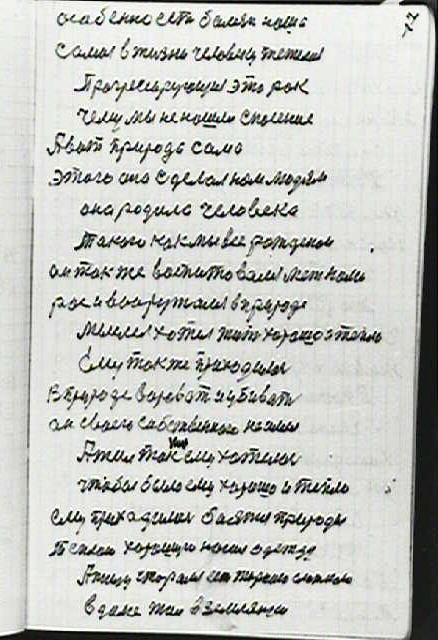 77
особенности болезн наша
самая в жизни человеку тяжелая
Прогресирующия это рак
чему мы не нашли спасение
А вот природа сама
этого она сделала нам людям
она родила человека
такого как мы все рождены
он так же воспитовался
рос и вооружался в природе
хотел жить хорошо и тепло
Ему также приходилос
В природе воровать и убивать
он своего собственного не имел
А жил так ему хотелос
чтобы было ему хорошо и тепло
ему приходилос боятся природы
теплою хорошую носил одежду
А пищу старался
в доме жил в землянки